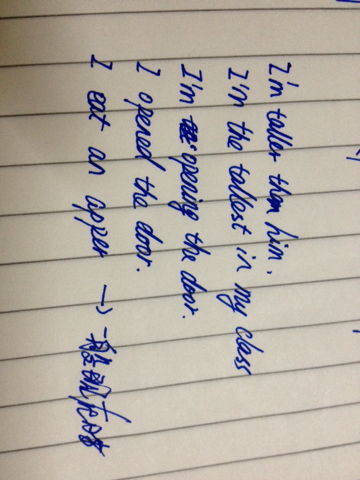 I'm taller than him.
I'm the tallest in my class
I'm opening the door.
I opened the door.
I eat an apper → 一般现在时